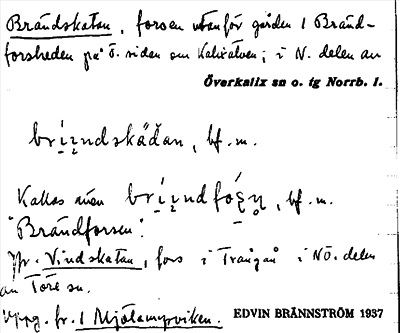 Brändskatan, forsen utanför gården 1 Bränd-
forsheden på ö. sidan om Kalixälven; i N. delen av
Överkalix sn o. tg Norrb. l.
brı́ı̯ndskäđan, bf. m.
Kallas även brı́ı̯ndfo̜ʂn̥, bf. m.
"Brändforsen".
Jfr. Vindskatan, fors i Trångån i NÖ. delen
av Töre sn.
Uppg. fr. 1 Mjölampviken. EDVIN BRÄNNSTRÖM 1937